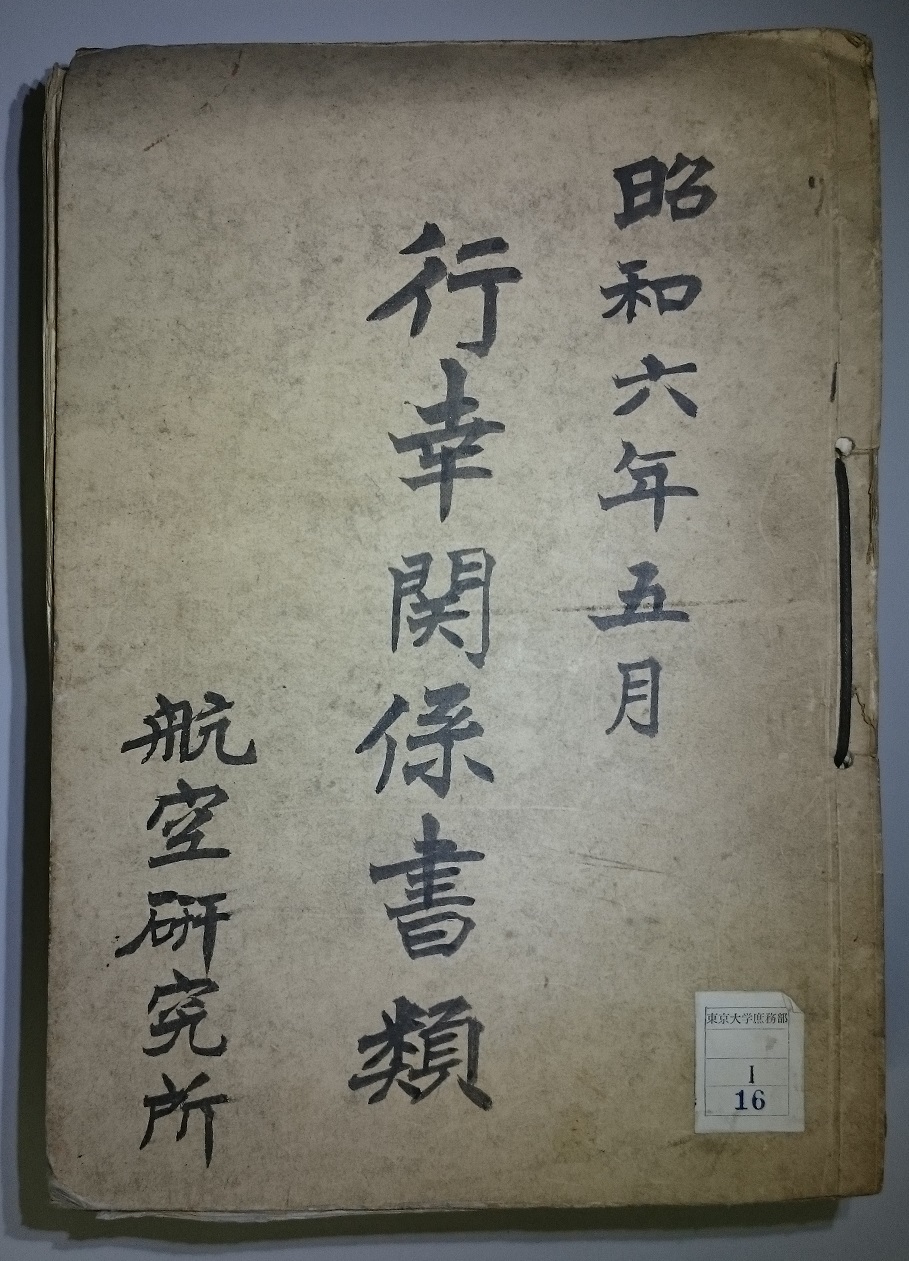 昭和六年五月
行幸関係書類
航空研究所
東京大学庶務部
1
16